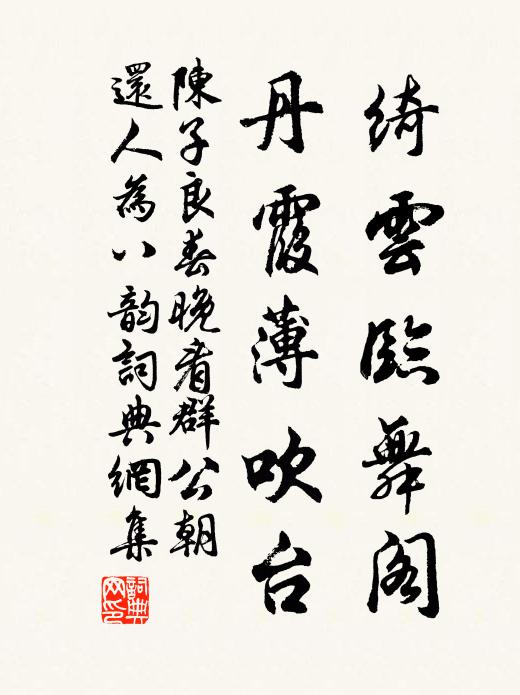 綺雲臨舞閣
丹霞薄吹台
陳子良春晚看群公朝
還人為八韵詞典網集
詞典网印